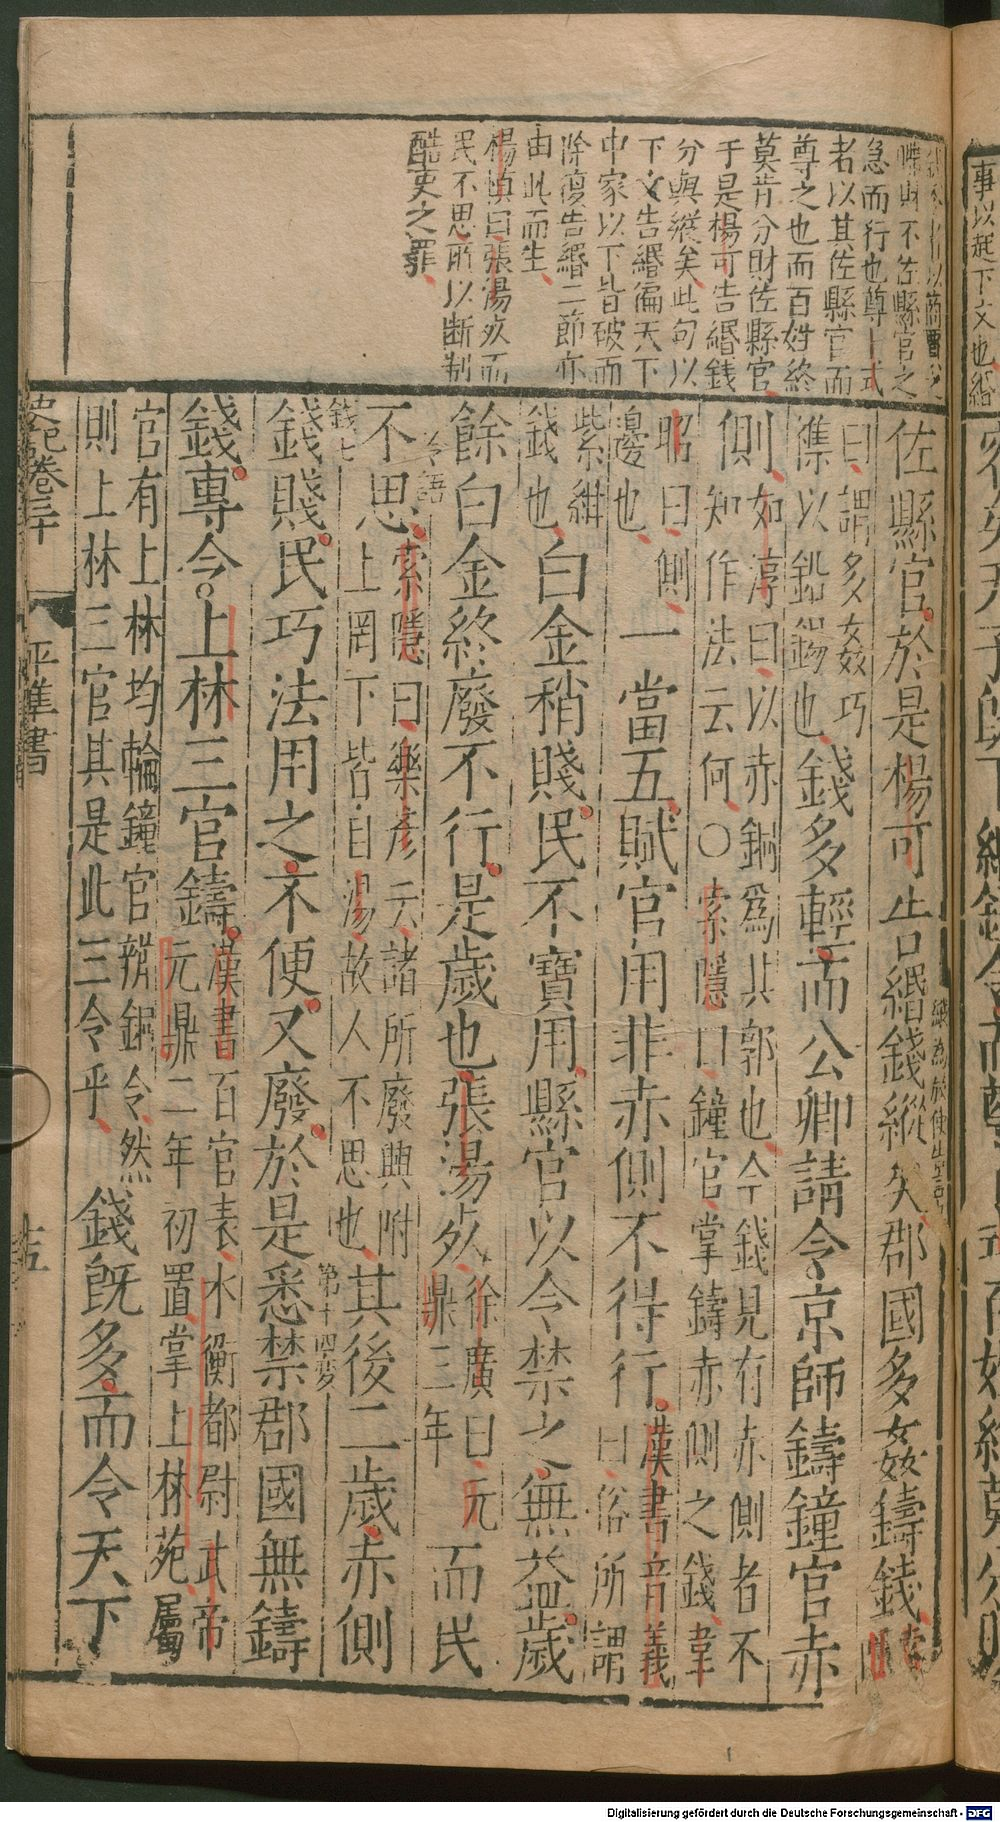 急而行也尊卜式
者以其佐縣官而
尊之也而百姓終
莫肯分財佐縣官
于是楊可告緡錢
分與縱矣此句以
下文告緡徧天下
中家以下皆破而
除復告緡二節亦
由此而生
楊慎曰張湯死而
民不思所以斷制
酷吏之罪
佐縣官於是楊可告緡錢縱矣郡國多姦鑄錢
曰謂多姦巧
雜以鉛錫也錢多輕而公卿請令京師鑄鐘官赤
側如淳曰以赤銅爲其郭也今錢見有赤側者不
知作法云何○索隱曰鐘官掌鑄赤側之錢韋
昭曰側
邊也一當五賦官用非赤側不得行漢書音義
曰俗所謂
紫紺
錢也白金稍賤民不寶用縣官以令禁之無益歲
餘白金終廢不行是歲也張湯死徐廣曰元
鼎三年而民
不思索隱曰樂彦云諸所廢興附
上罔下皆自湯故人不思也其後二歲赤側
錢賤民巧法用之不便又廢於是悉禁郡國無鑄
錢專令上林三官鑄漢書百官表水衡都尉武帝
元鼎二年初置掌上林苑屬
官有上林均輸鐘官辨銅令然
則上林三官其是此三令乎錢既多而令天下
史記卷三十 平準書
事以起下文也緡
Digitalisierung gefördert durch die Deutsche Forschungsgemeinschaft - DFG